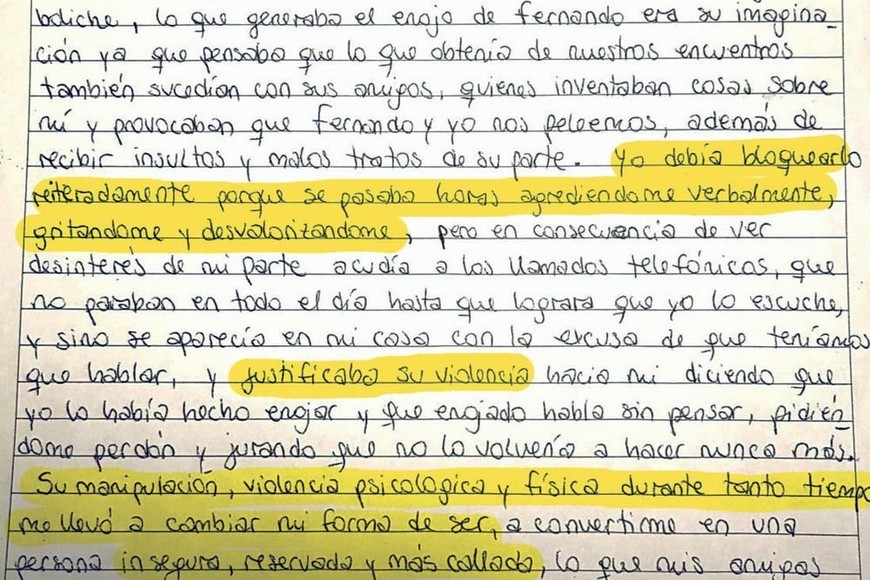 boliche, lo que generaba el enojo de Fernando era su imagina_
ción ya que pensaba que lo que obtenía de nuestros encuentros
también sucedían con sus amigos, quienes inventaban cosas sobre
mí y provocaban que Fernando y yo nos peleemos, además de
recibir insultos y malos tratos de su parte. Yo debía bloquearlo
reiteradamente porque se pasaba horas agrediendome verbalmente,
gritandome y desvalorizandome, pero en consecuencia de ver
desinterés de mi parte acudía a los llamados telefónicos, que
no paraban en todo el día hasta que lograra que yo lo escuche,
y sino se aparecía en mi casa con la excusa de que teníamos
que hablar, y justificaba su violencia hacia mi diciendo que
yo lo había hecho enojar y que enojado habla sin pensar, pidién_
dome perdón y jurando que no lo volvería a hacer nunca más.
Su manipulación, violencia psicologica y física durante tanto tiempo
me llevó a cambiar mi forma de ser, a convertirme en una
persona insegura, reservada y más callada, lo que mis amigos